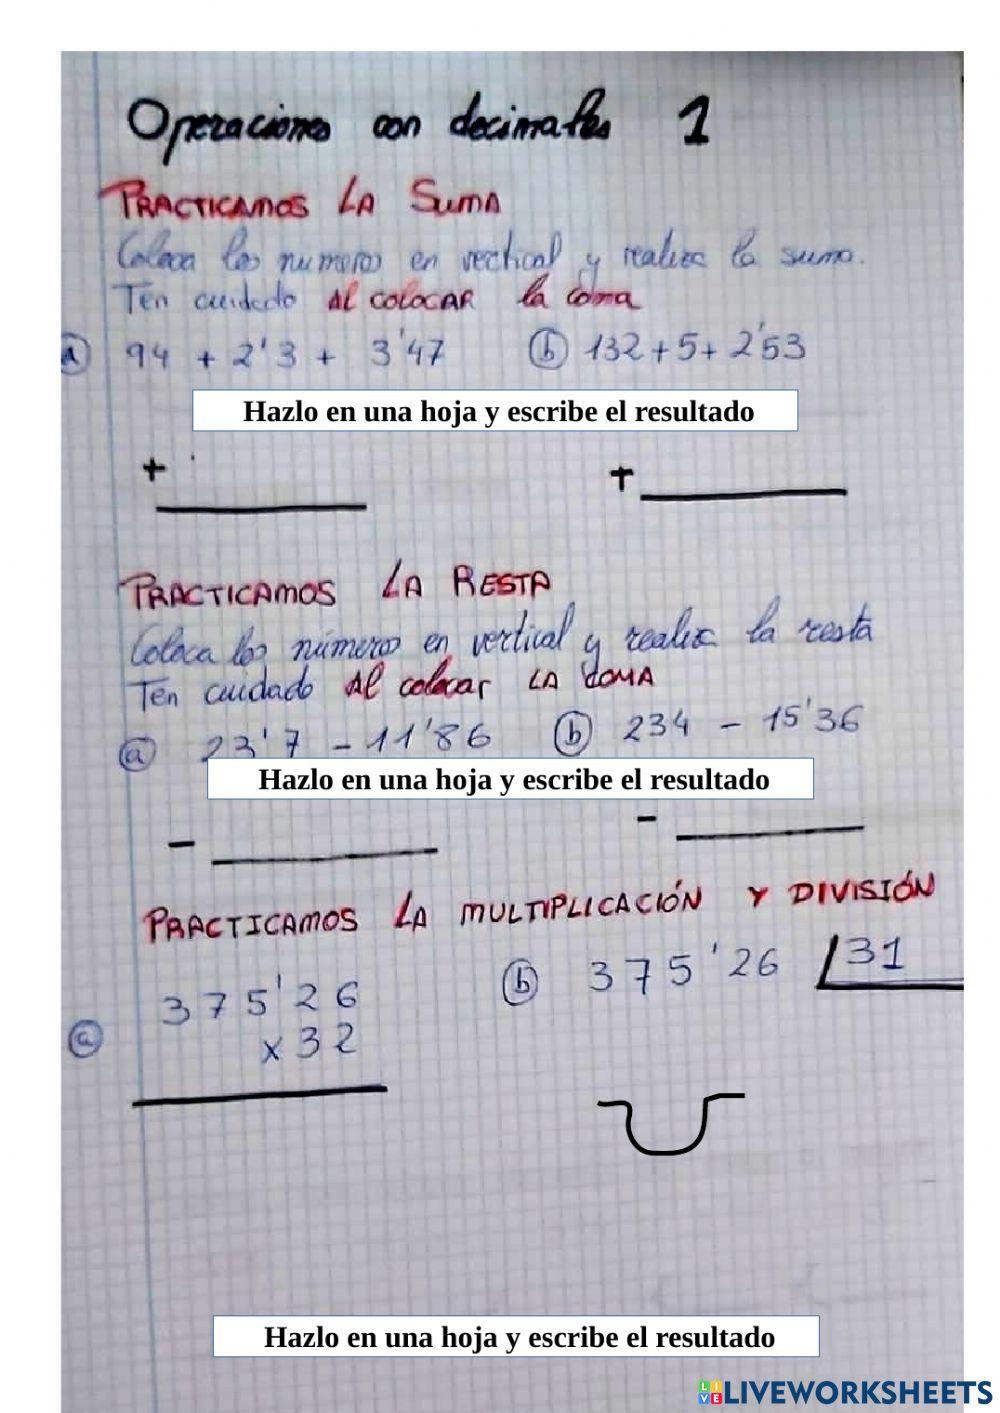 Operaciones con decimales 1
PRACTICAMOS LA SUMA
Coloca los números en vertical y realiza la suma.
Ten cuidado AL COLOCAR la coma
a 94 + 2'3 + 3'47 b 132+5+2'53
Hazlo en una hoja y escribe el resultado
+ +
PRACTICAMOS LA RESTA
Coloca los números en vertical y realiza la resta
Ten cuidado Al colocar LA COMA
a 23'7 - 11'86 b 234 - 15'36
Hazlo en una hoja y escribe el resultado
- -
PRACTICAMOS LA MULTIPLICACIÓN Y DIVISIÓN
a 375'26 b 375'26 31
x32
Hazlo en una hoja y escribe el resultado
LIVEWORKSHEETS